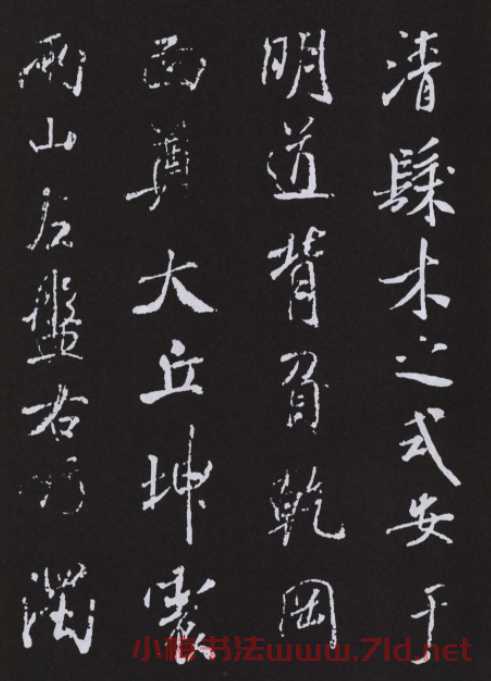 清木之式安于
明道背負乾岡
面巽大丘坤震
兩山左盤右
小楷书法www.7ld.net